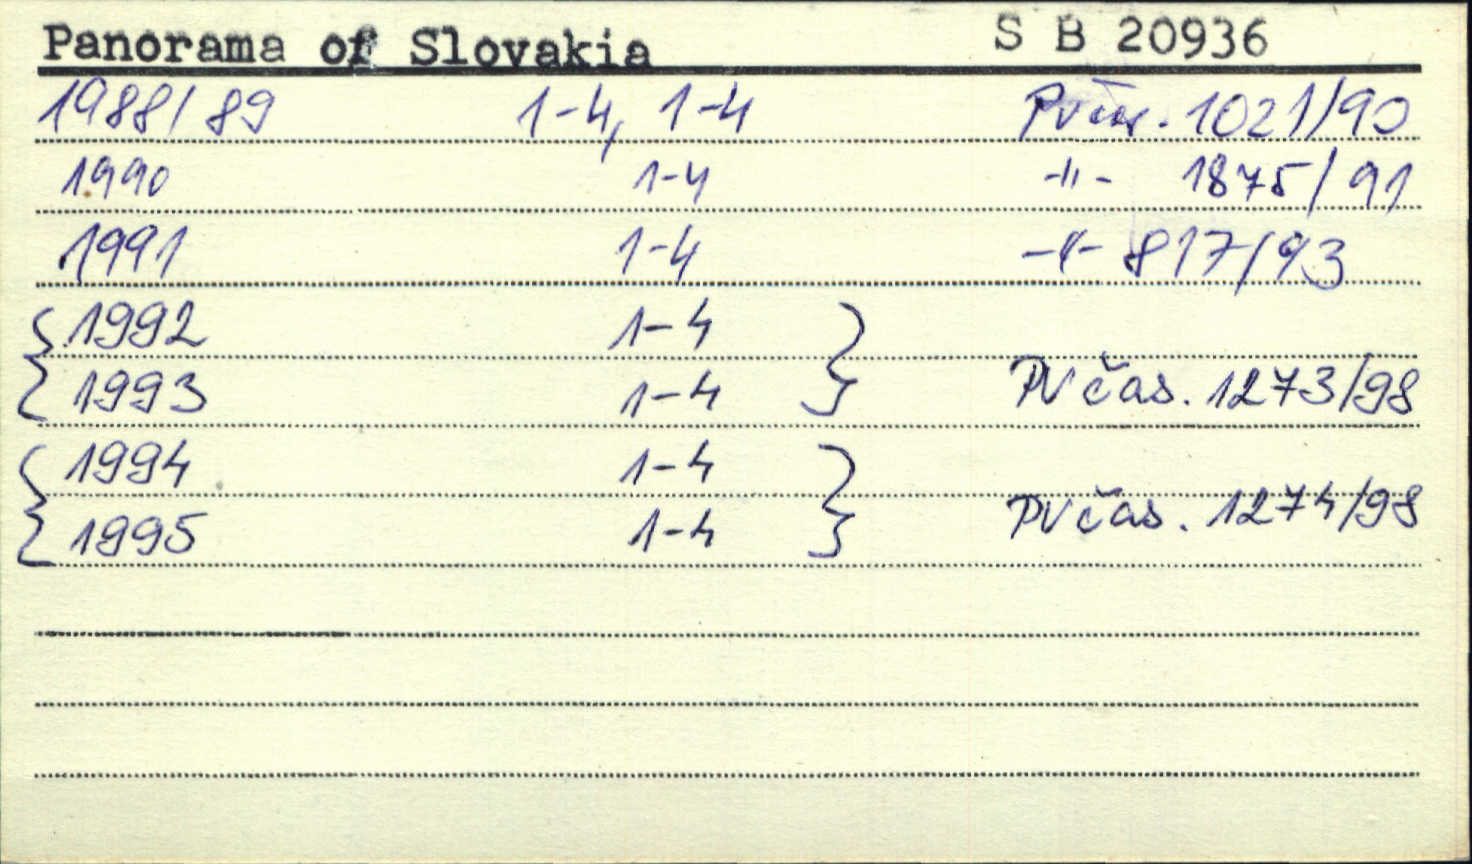 Panorama of Slovakia S B 20936
1988/89 1-4, 1-4 PV čas. 1021/90
1990 1-4 -"- 1875/91
1991 1-4 -"- 817/93
{ 1992 1-4 }
{ 1993 1-4 } PV čas. 1273/98
{ 1994 1-4 }
{ 1995 1-4 } PV čas. 1274/98